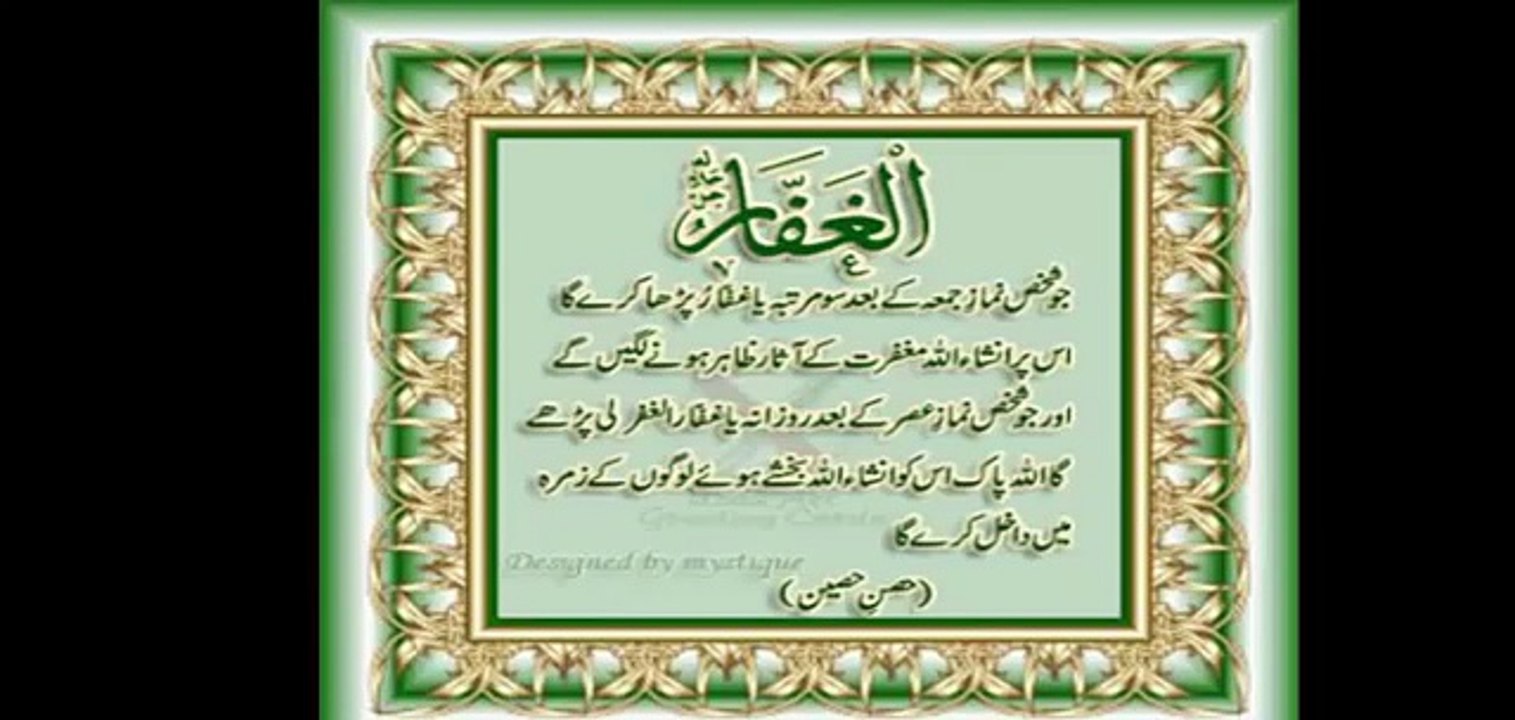 اَلْغَفَّارُ جل جلالہ
جو شخص نمازِ جمعہ کے بعد سو مرتبہ یا غفّارُ پڑھا کرے گا
اس پر انشاء اللہ مغفرت کے آثار ظاہر ہونے لگیں گے
اور جو شخص نمازِ عصر کے بعد روزانہ یا غفّار الغفر لی پڑھے
گا اللہ پاک اس کو انشاء اللہ بخشے ہوئے لوگوں کے زمرہ
میں داخل کرے گا
Designed by mystique
(حصنِ حصین)